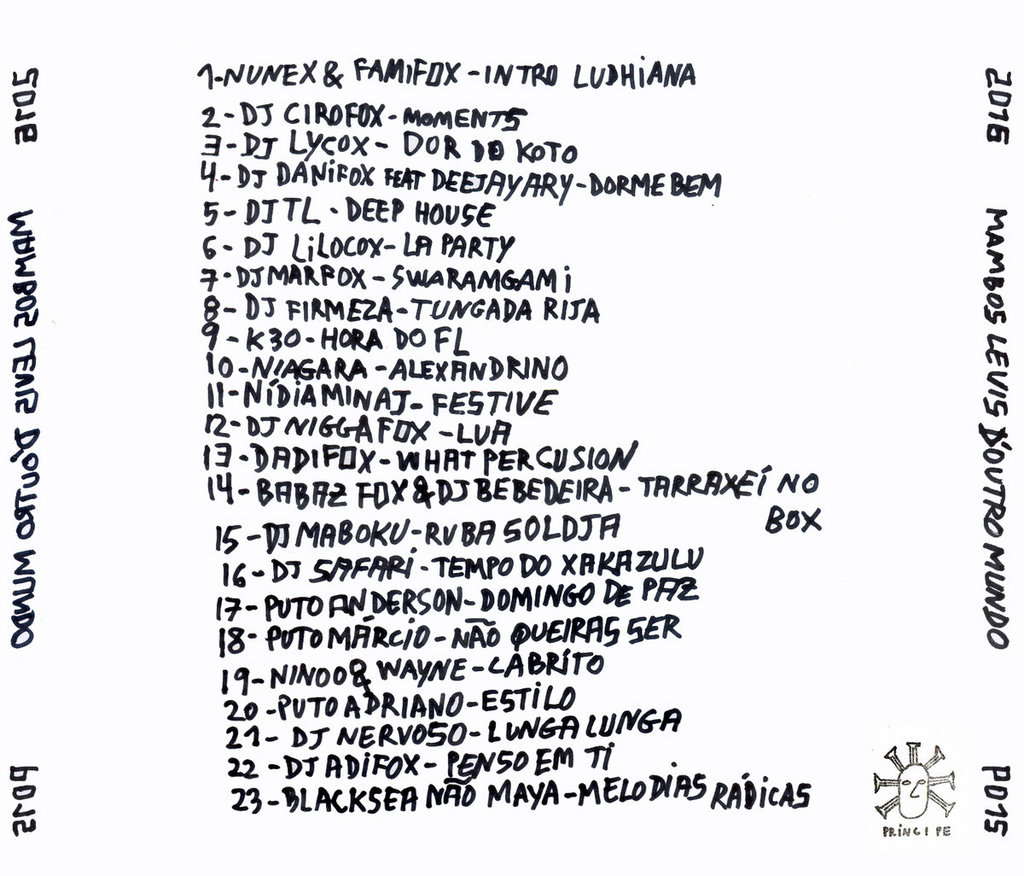 1-NUNEX & FAMIFOX-INTRO LUDHIANA
2-DJ CIROFOX-MOMENTS
3-DJ LYCOX-DOR DO KOTO
4-DJ DANiFOX FEAT DEEJAYARY-DORME BEM
5-DJ TL-DEEP HOUSE
6-DJ LiLOCOX-LA PARTY
7-DJ MARFOX-SWARAMGAMi
8-DJ FIRMEZA-TUNGADA RIJA
9-K30-HORA DO FL
10-NIAGARA-ALEXANDRINO
11-NÍDIA MINAJ-FESTIVE
12-DJ NIGGA FOX-LUA
13-DADIFOX-WHAT PERCUSION
14-BABAZ FOX & DJ BEBEDEIRA-TARRAXEÍ NO
BOX
15-DJ MABOKU-RUBA SOLDJA
16-DJ SAFARi-TEMPO DO XAKAZULU
17-PUTO ANDERSON-DOMINGO DE PAZ
18-PUTO MÁRCIO-NÃO QUEIRAS SER
19-NINOO & WAYNE-CABRITO
20-PUTO ADRIANO-ESTiLO
21-DJ NERVOSO-LUNGA LUNGA
22-DJ ADIFOX-PENSO EM Ti
23-BLACKSEA NÃO MAYA-MELODIAS RÁDICAS
2016 MAMBOS LEVIS D'OUTRO MUNDO P015
2016 MAMBOS LEVIS D'OUTRO MUNDO P015
PRÍNCIPE